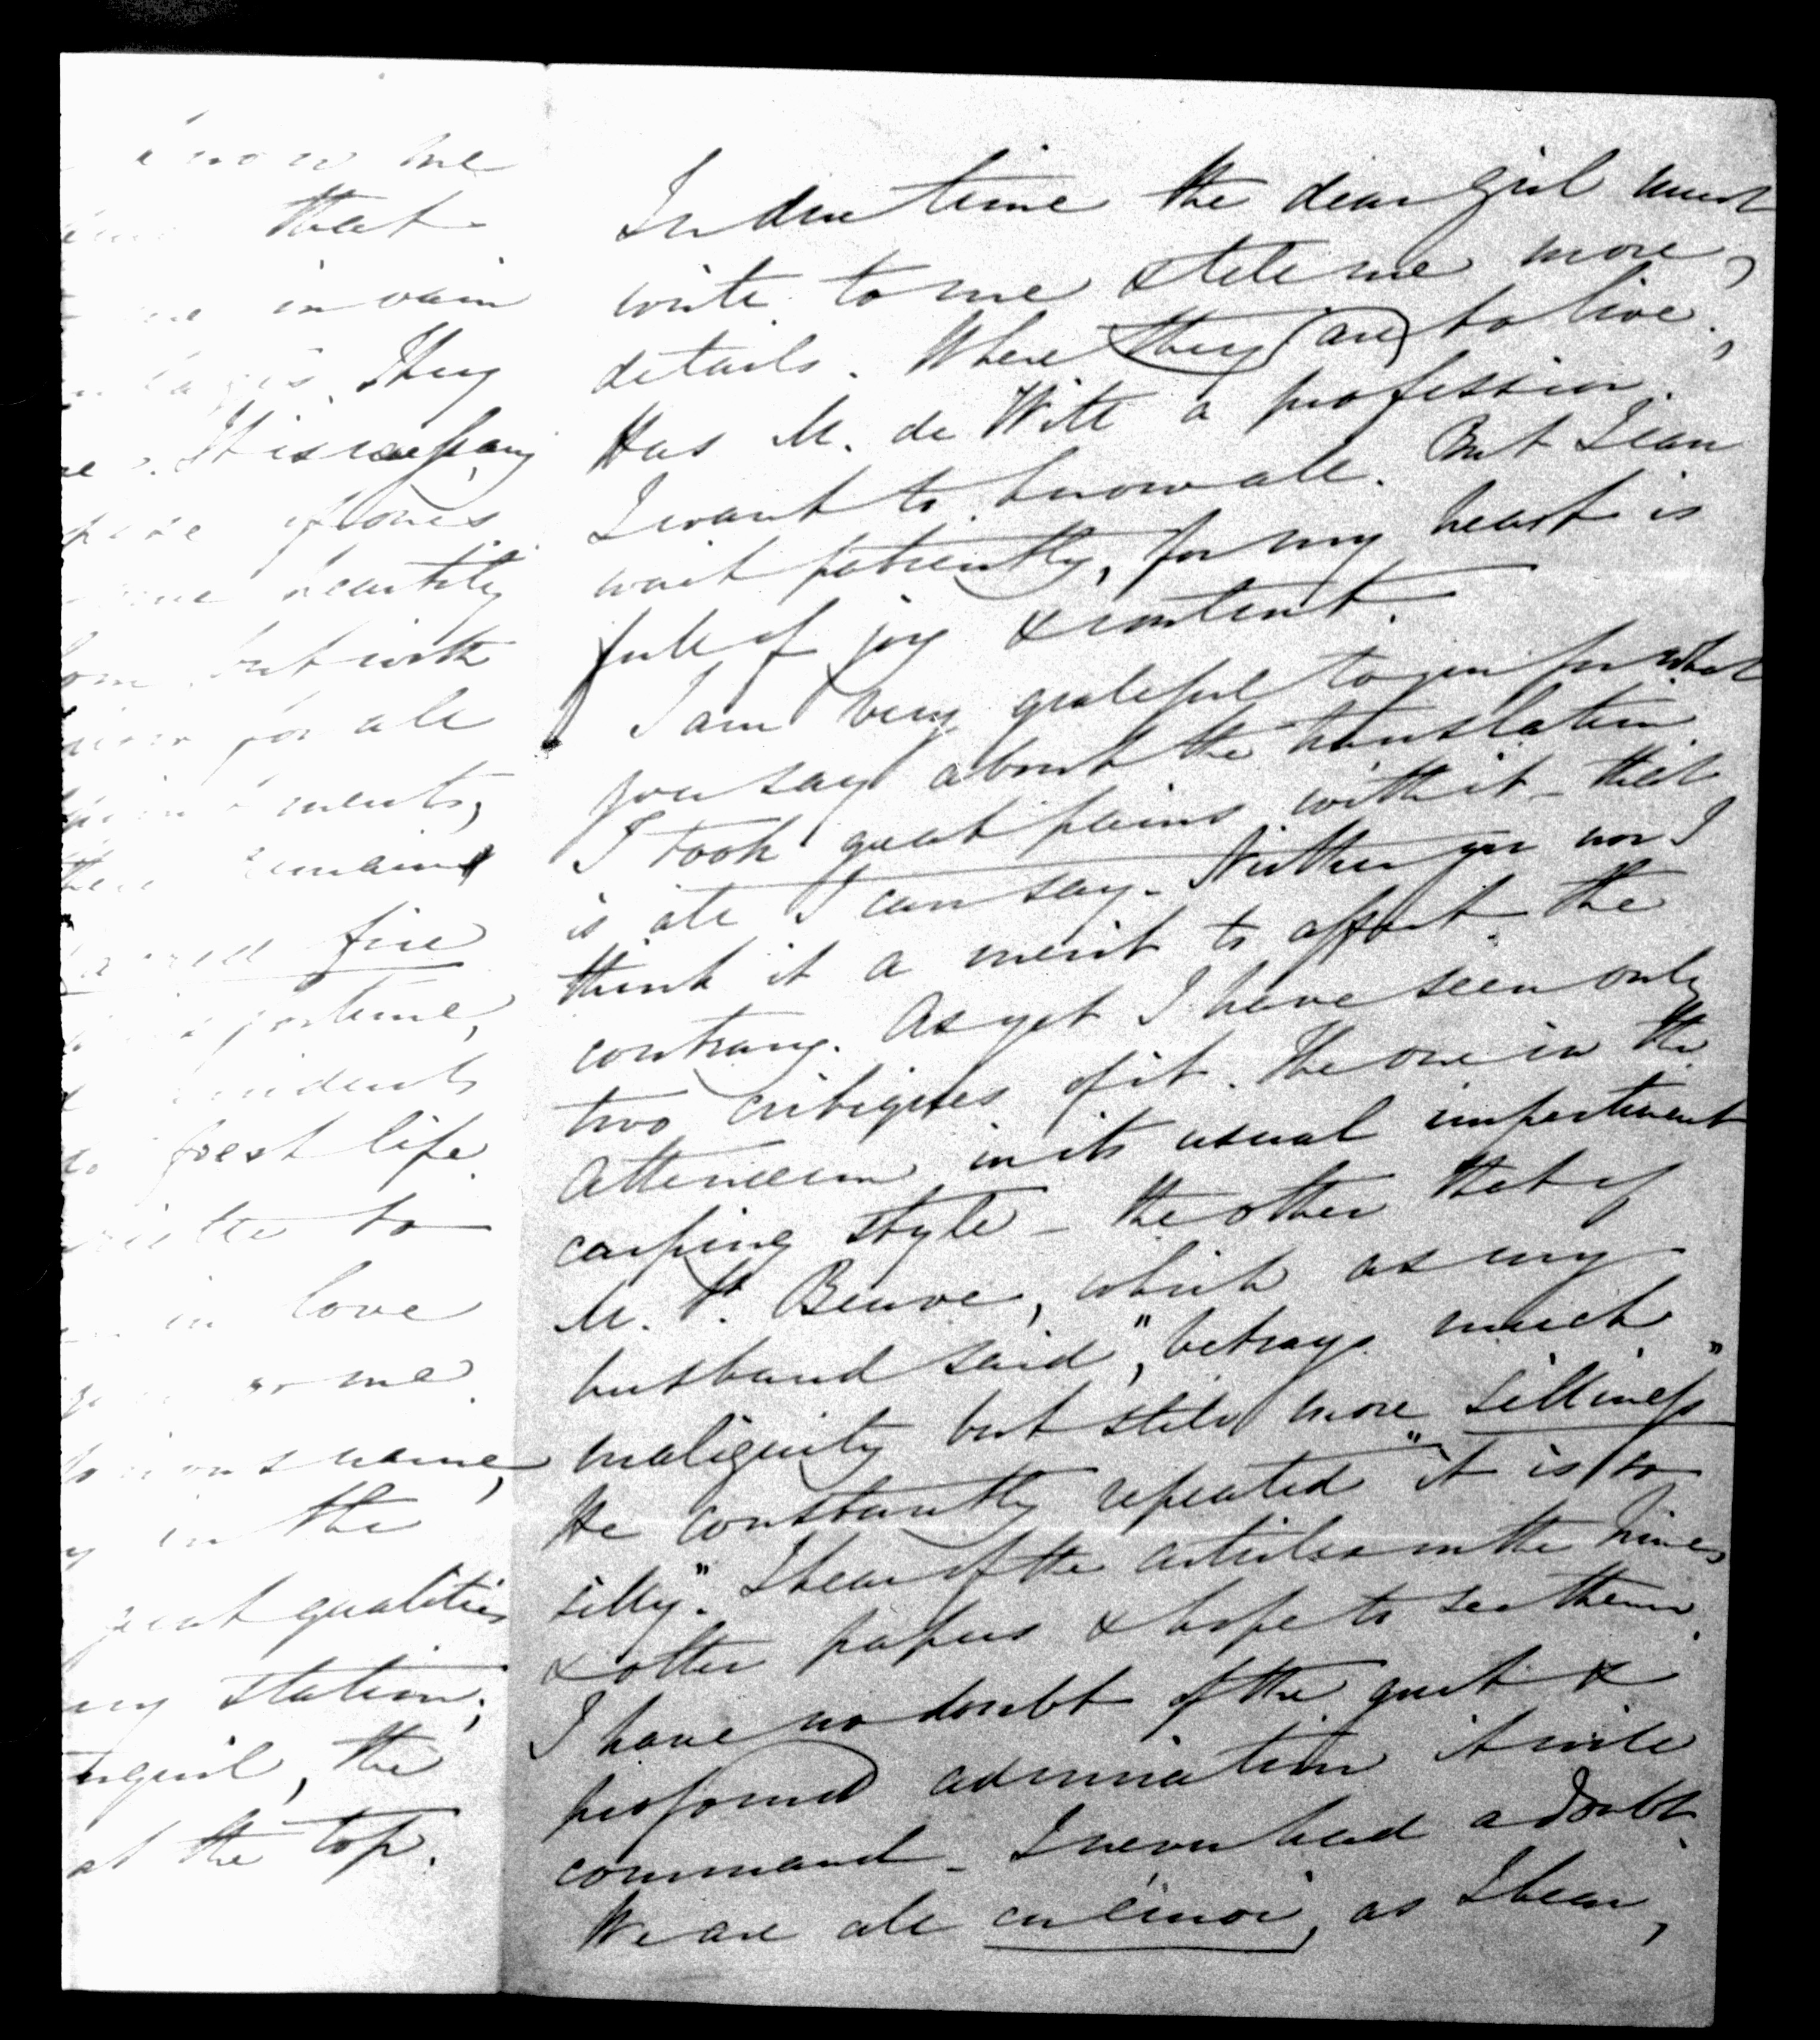 know me
that
in vain
They
It is
heartily
but with
for all
ments,
remains
fire
fortune,
life
to
in love
me.
name,
in the
great qualities
my station;
the
at the top.
In due time the dear girl must
write to me & tell me more
details. Where they (are) to live,
Has M. de Witt a profession.
I want to know all. But I can
wait patiently, for my heart is
full of joy & content.
I am very grateful to you for what
you say about the translation.
I took great pains with it – that
is all I can say – Neither you nor I
think it a merit to affect the
contrary. As yet I have seen only
two critiques of it. The one in the
Atheneum in its usual impertinent
carping style – the other that of
M. St. Beuve, which as my
husband said, "betrays much
malignity but still more silliness"
He constantly repeated "it is so
silly". I hear of the articles in the Times
& other papers & hope to see them.
I have no doubt of the great &
profound admiration it will
command – I never had a doubt.
We are all en émoi, as I hear,